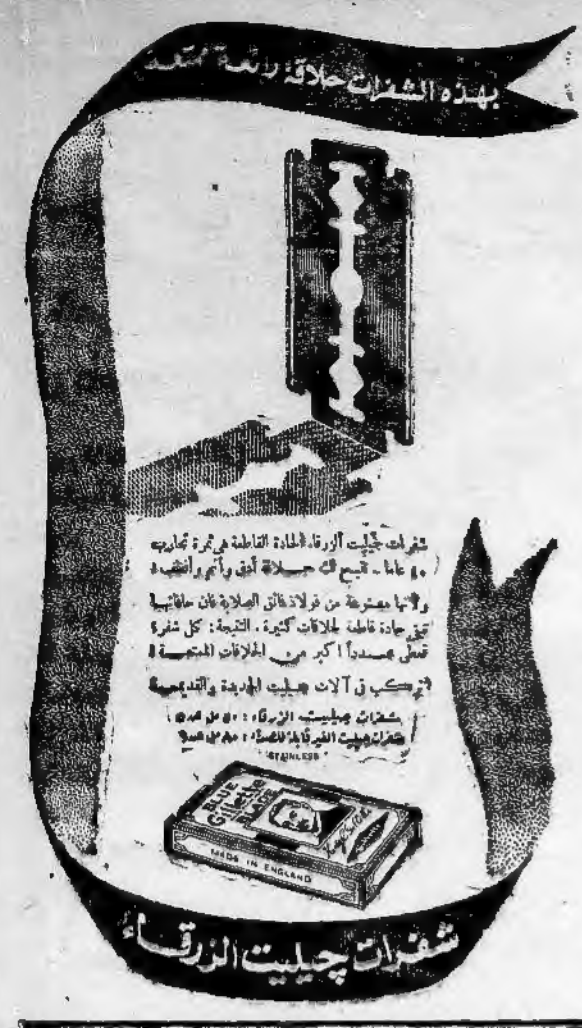 بهذه الشفرات حلاقة رائعة ممتعة
شفرات چيليت الزرقاء الحادة القاطعة هي ثمرة تجاريب
عاما - تتيح لك حلاقة أدق وأتم وأنظف
ولأنها مصنوعة من فولاذ فائق الصلابة فان حافاتها
تبقى حادة قاطعة لحلاقات كثيرة . النتيجة : كل شفرة
تعطى عددا أكبر من الحلاقات الممتعة
تركب فى آلات چيليت الجديدة والقديمة
شفرات چيليت الزرقاء :
شفرات چيليت الغير قابلة للصدأ :
"STAINLESS"
BLUE
Gillette
BLADE
MADE IN ENGLAND
شفرات چيليت الزرقاء